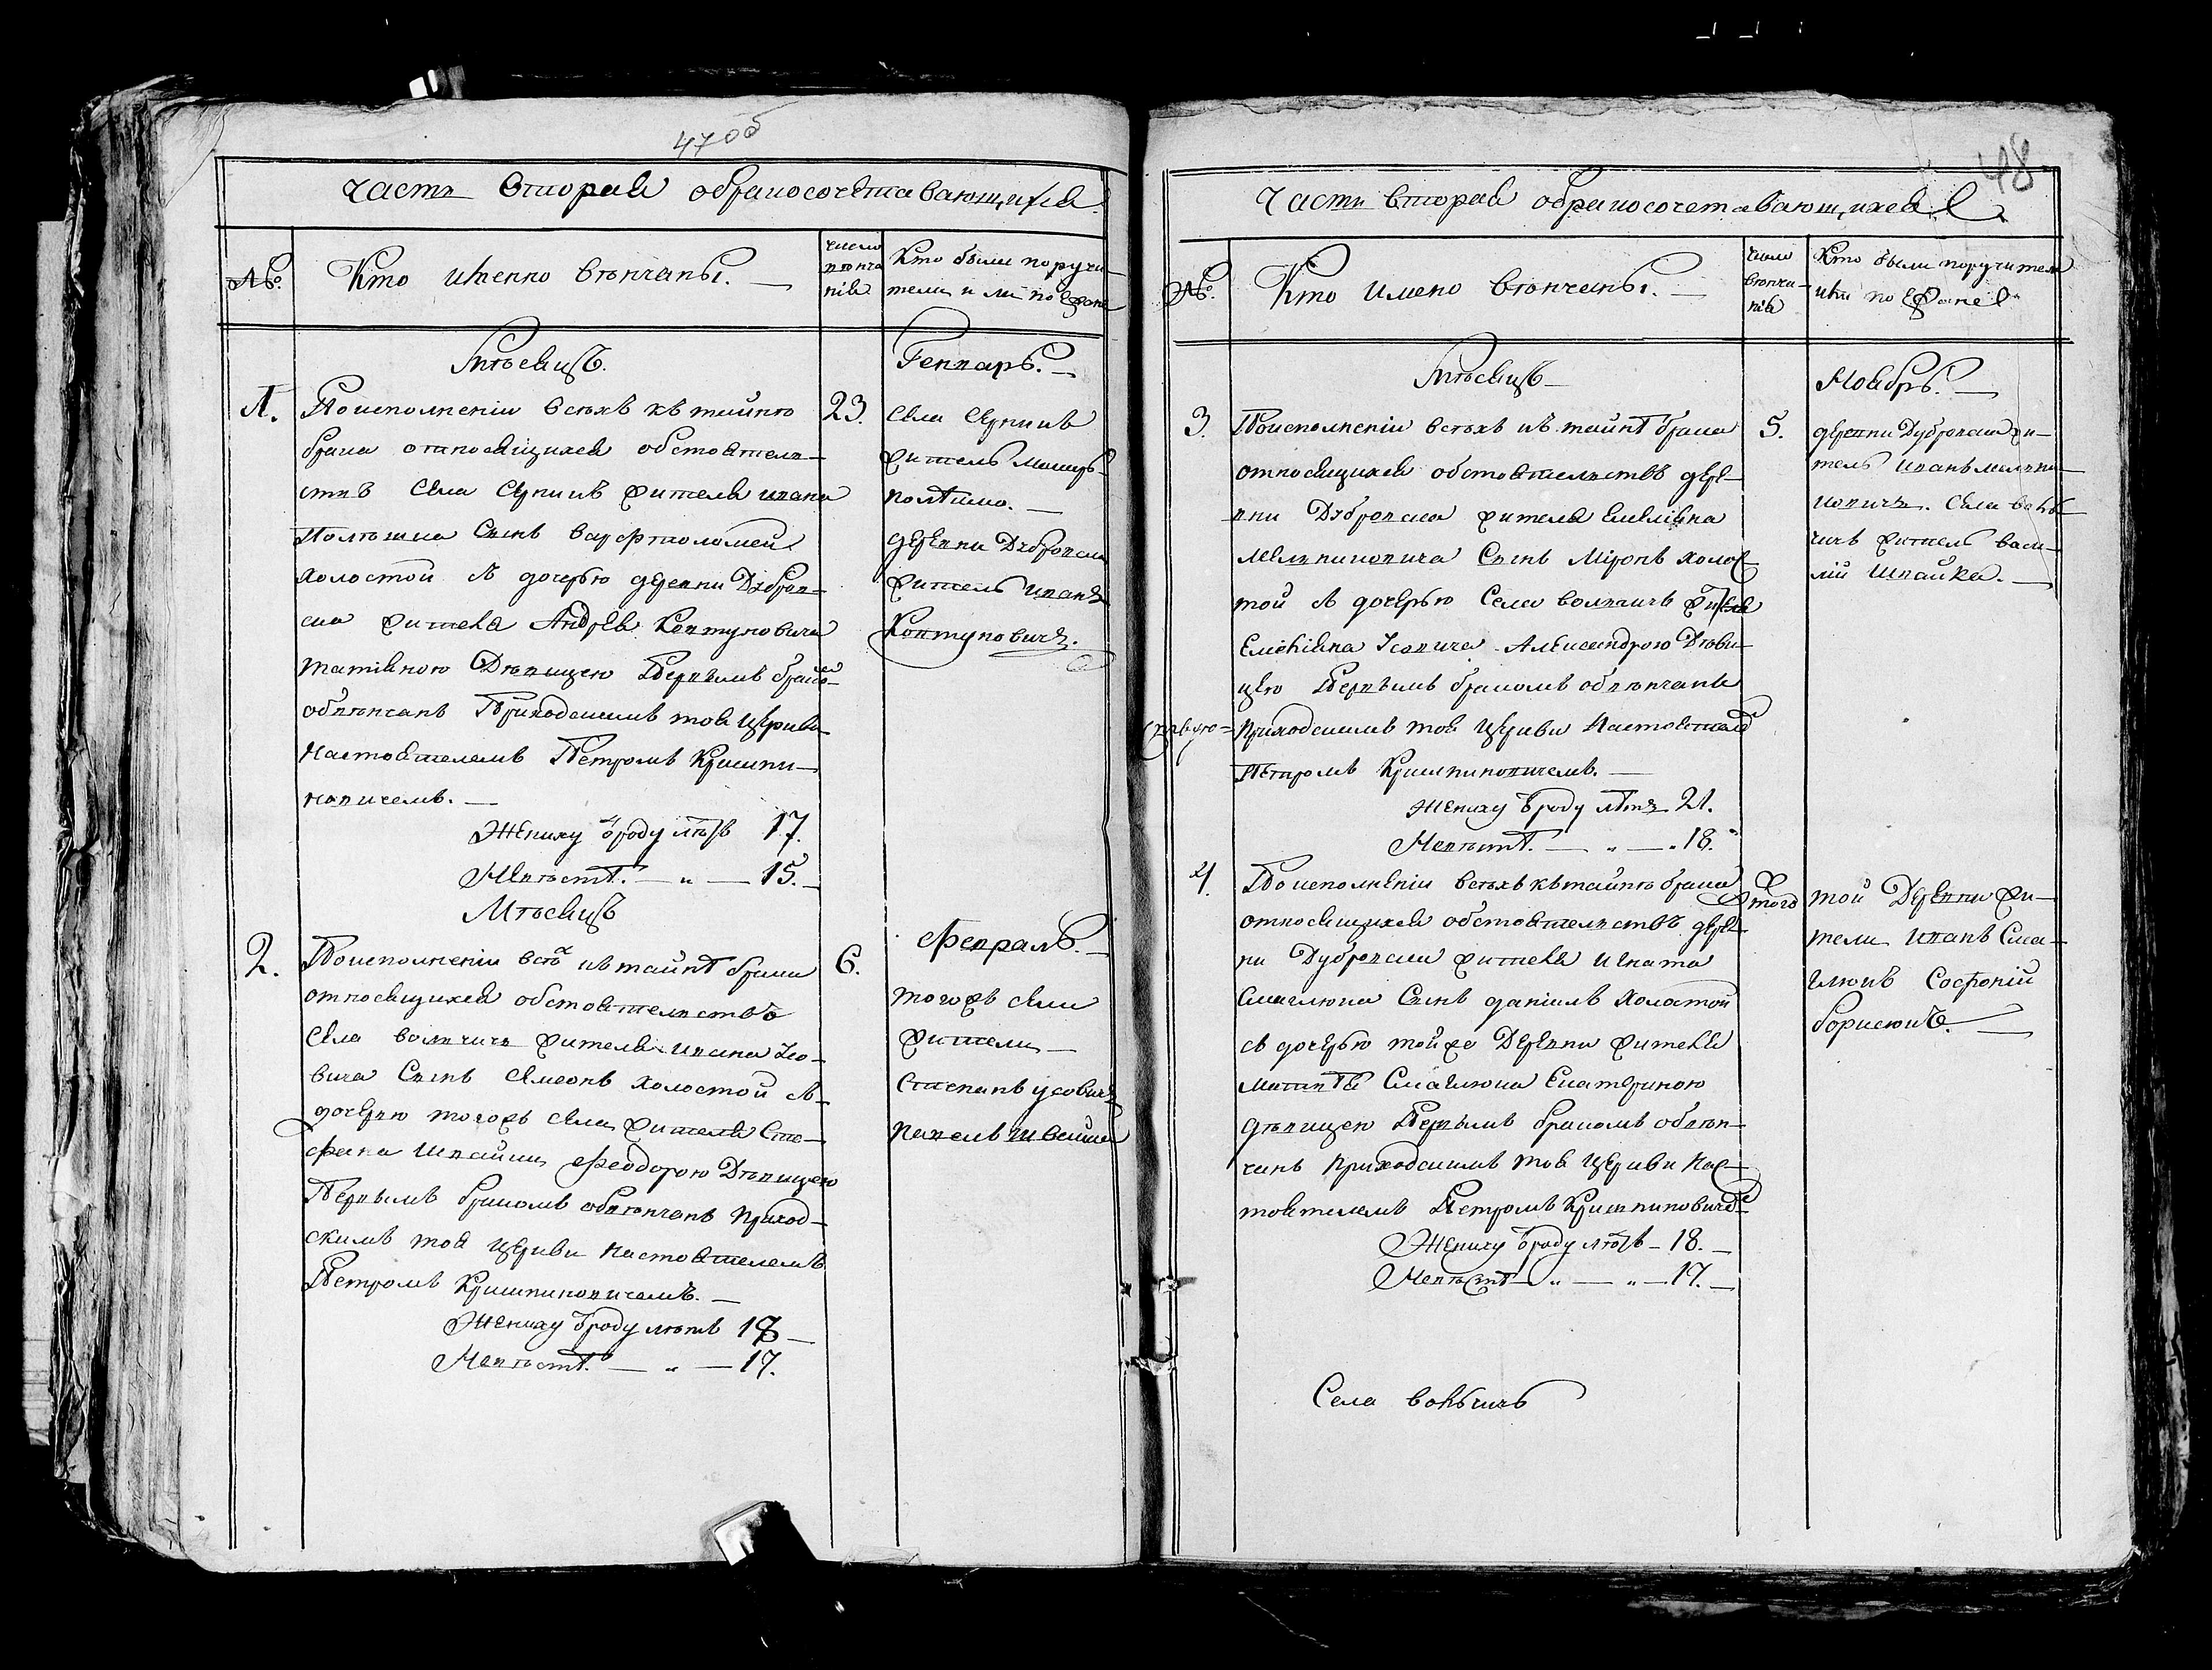 47об
часть вторая обракосочетавающихся
№.
Кто именно вѣнчаны.
число
вѣнча
нія
Кто были поручи-
тели и ли по
Мѣсяцъ.
Геннарь.
1.
23.
Поисполненіи всѣхъ къ тайнѣ
брака относящихся обстоятель-
ствъ села жителя ивана
сынъ варфтоломей
холостой съ дочерью деревни Дубров-
ска жителя Андрея Ковтуновича
татіяною Дѣвицею Первымъ бракомъ
обвѣнчанъ Приходскимъ тоя церкви
Настоятелемъ Петромъ
новичемъ.
Жениху ѿроду лѣтъ 17.
Невѣстѣ. — „ — 15.
села
житель
деревни Дубровска
житель иванъ
Ковтуновичъ.
Мѣсяцъ
Февраль.
2.
6.
Поисполненіи всѣх къ тайнѣ брака
относящихся обстоятельствъ
села волчичъ жителя ивана Усо-
вича сынъ Симеонъ холостой съ
дочерью тогожъ села жителя Сте-
фана Шпайки Феодорою Дѣвицею
Первымъ бракомъ обвѣнчанъ приход-
скимъ тоя церкви настоятелемъ
Петромъ
Жениху ѿроду лѣтъ 18
Невѣстѣ. — „ — 17.
тогожъ села
жители
Степанъ усовичъ
павелъ
48
Часть вторая обракосочетавающихся
№.
Кто имено вѣнчаны.
число
вѣнча-
нія
Кто были поручители
или по
Мѣсяцъ
Ноябрь.
3.
5.
Поисполненіи всѣхъ къ тайнѣ брака
относящихся обстоятельствъ дере-
вни Дубровска жителя Емеліяна
Мельниковича сынъ Миронъ холос-
той съ дочерью села волчичъ жителя
Емеліяна Усовича Александрою Дѣви-
цею Первымъ бракомъ обвѣнчанъ
приходскимъ тоя церкви Настоятелемъ
Петромъ
Жениху ѿроду лѣтъ 21.
Невѣстѣ. — „ — „ 18.
деревни Дубровска жи-
тель иванъ мельни-
ковичъ. села воль-
чичъ житель васи-
лій Шпайка.
4.
тогожъ
Поисполненіи всѣхъ къ тайнѣ брака
относящихся обстоятельствъ дерев-
ни Дубровска жителя Игната
Смаглюка сынъ даніилъ холостой
съ дочерью тойже Деревни жителя
Смаглюка Екатериною
дѣвицею Первымъ бракомъ обвѣн-
чанъ приходскимъ тоя церкви Нас-
тоятелемъ Петромъ
Жениху ѿроду лѣтъ — 18.
Невѣстѣ — „ — „ — 17.
той Деревни жи-
тели иванъ Сма-
глюкъ Софроній
борисюкъ.
Села вольчичъ